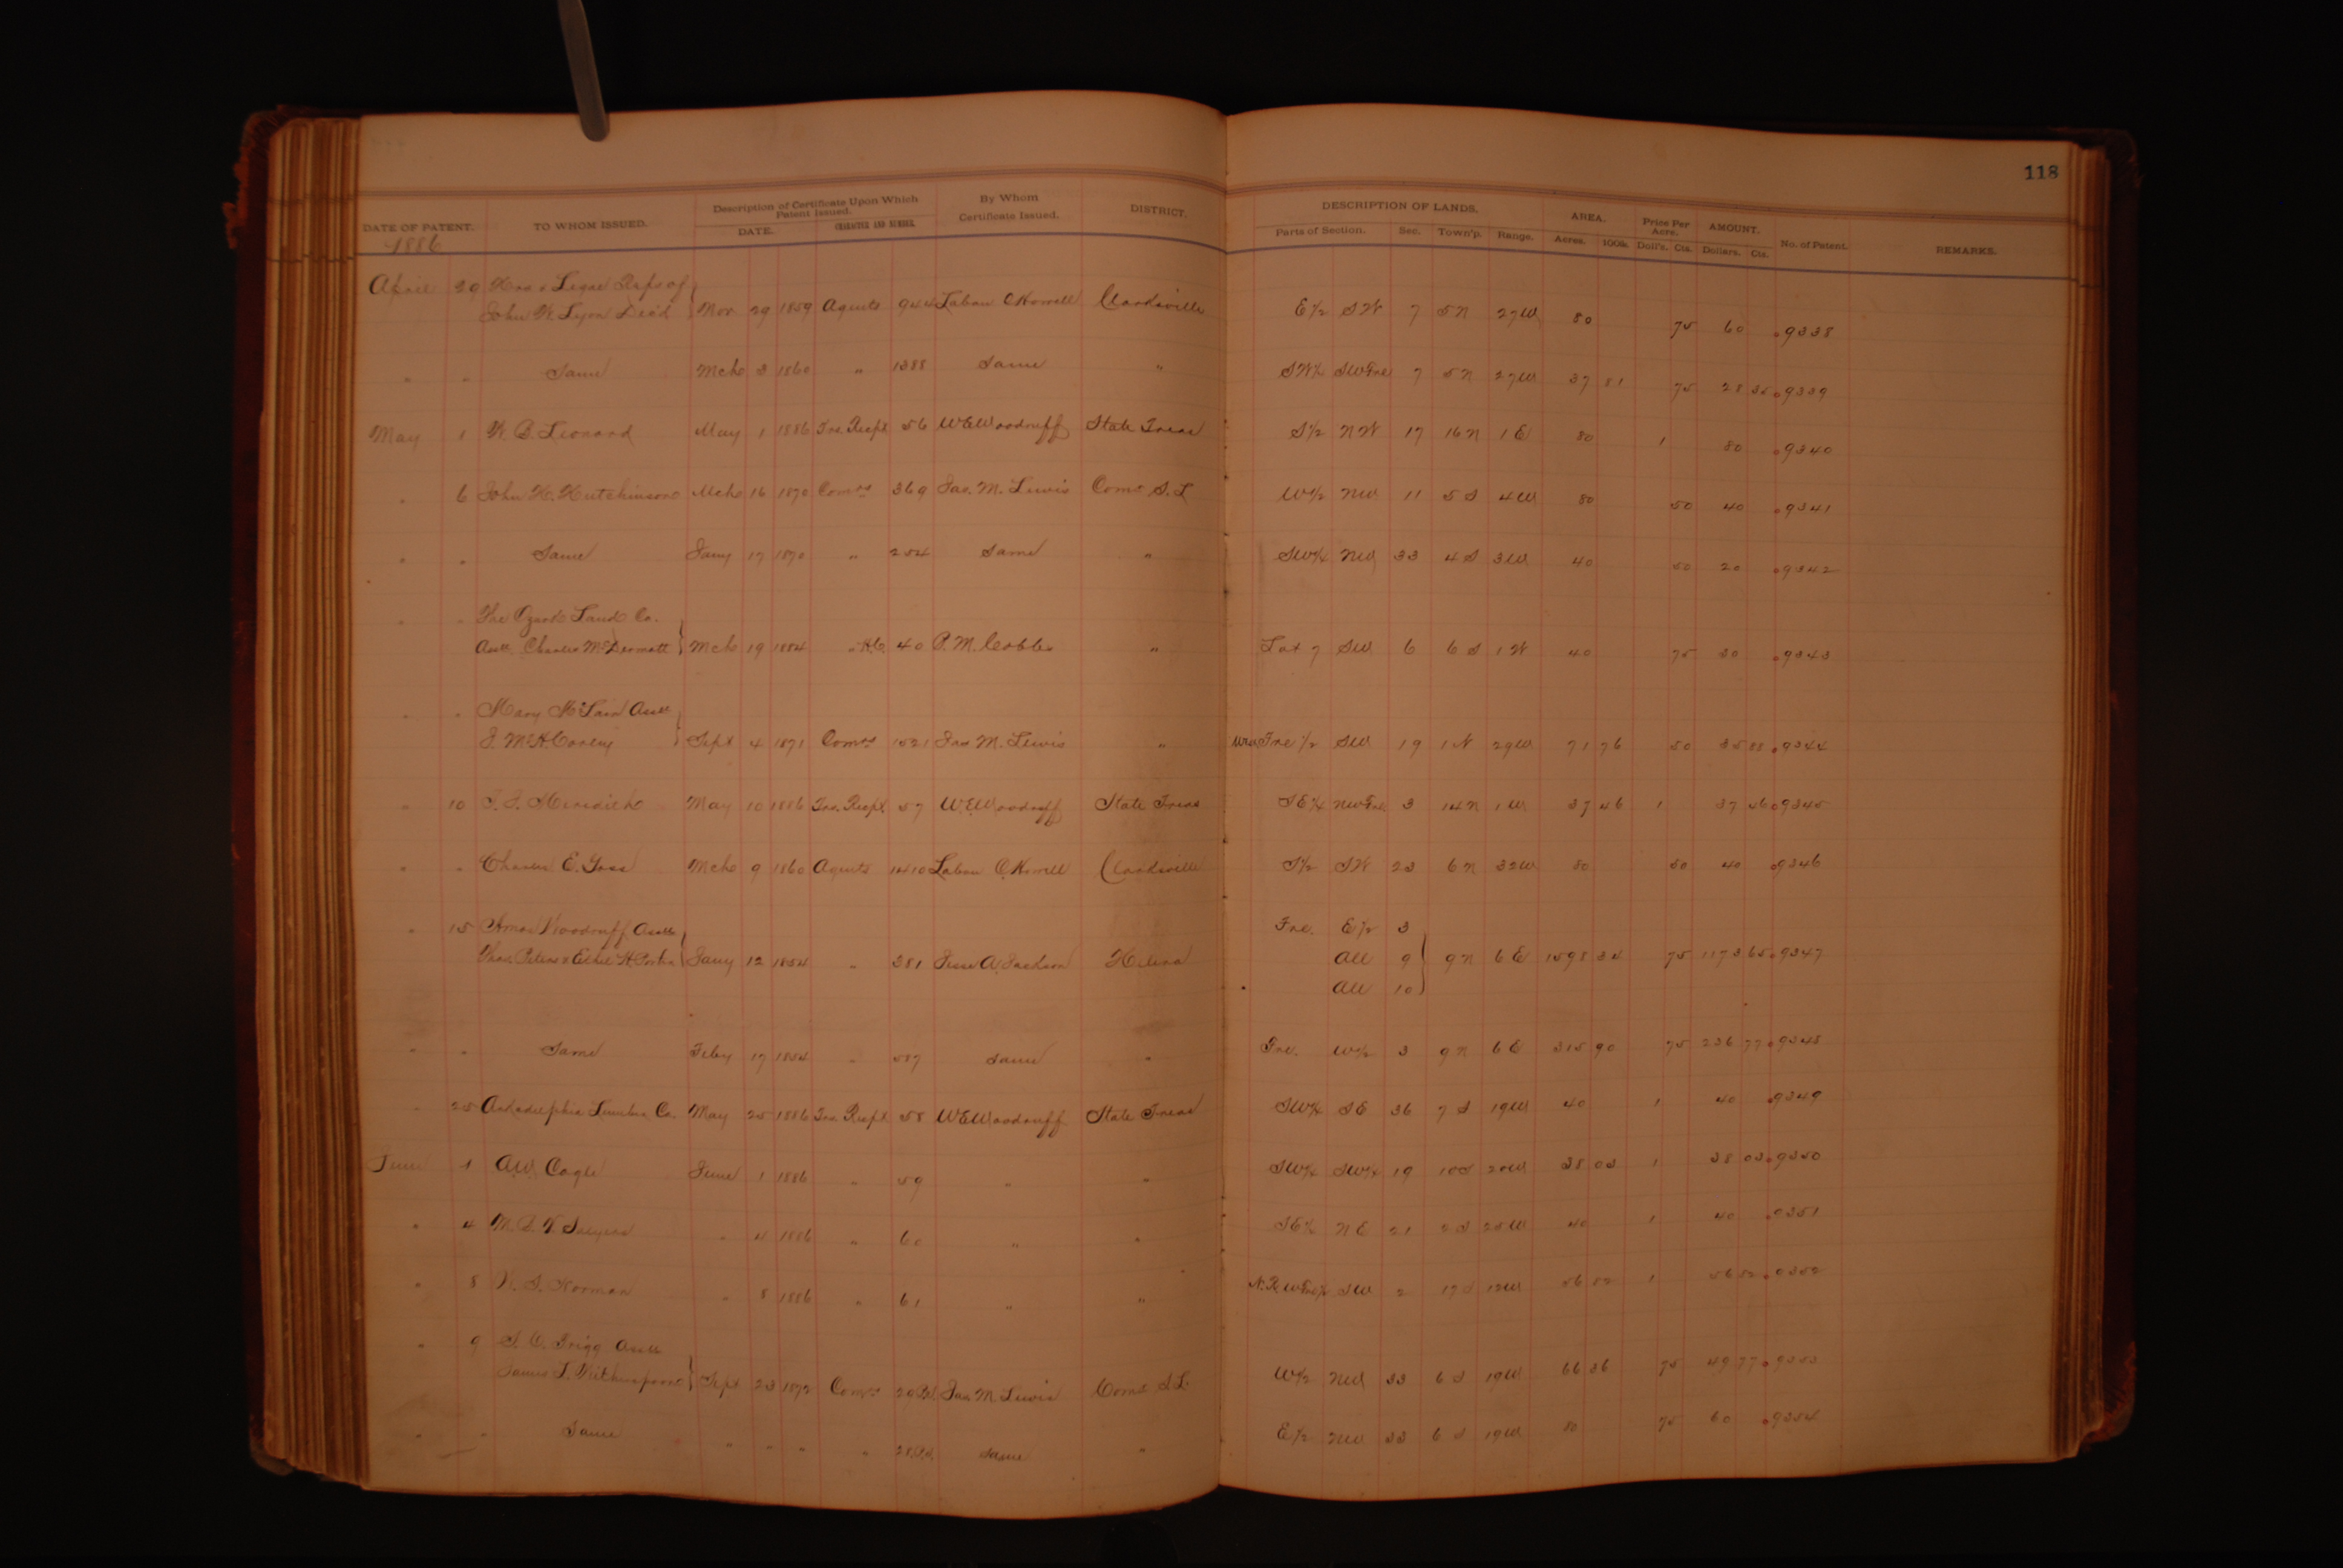 118
DATE OF PATENT. TO WHOM ISSUED. Description of Certificate Upon Which Patent Issued. DATE. CHARACTER AND NUMBER. By Whom Certificate Issued. DISTRICT. DESCRIPTION OF LANDS. Parts of Section. Sec. Town'p. Range. AREA. Acres. 100ths. Price Per Acre. Doll's. Cts. AMOUNT. Dollars. Cts. No. of Patent. REMARKS.
1886
April 29 Hrs & Legal Reps of
John W. Lyon Dec'd } Nov 29 1859 Agents 944 Laban C. Howell Clarksville E 1/2 SW 7 5N 27W 80 75 60 9338
" " Same Mch 3 1860 " 1388 Same " SW 1/4 SW Frl 7 5N 27W 37 81 75 28 35 9339
May 1 W. B. Leonard May 1 1886 Trs. Recpt 56 W E Woodruff State Treas S 1/2 NW 17 16N 1E 80 1 80 9340
" 6 John H. Hutchinson Mch 16 1870 Comrs 369 Jas. M. Lewis Comr S. L W 1/2 NW 11 5S 4W 80 50 40 9341
" " Same Jany 17 1870 " 254 Same " SW 1/4 NW 33 4S 3W 40 50 20 9342
" " The Ozark Land Co.
Asse Charles McDermott } Mch 19 1884 " 40 P. M. Cobbs " Lot 7 SW 6 6S 1W 40 75 30 9343
" " Mary McLain Asse
J. McH. Corley } Sept 4 1871 Comrs 1521 Jas M. Lewis " Frl 1/2 SW 19 1N 29W 71 76 50 35 88 9344
" 10 Meredith May 10 1886 Trs. Recpt 57 W. E. Woodruff State Treas SE 1/4 NW Frl 3 14N 1W 37 46 1 37 46 9345
" " Charles E. Goss Mch 9 1860 Agents 1410 Laban C. Howell Clarksville S 1/2 SW 23 6N 32W 80 50 40 9346
" 15 Amos Woodruff Asse Frl. E 1/2 3
Peters & H. Porter } Jany 12 1854 " 381 Jesse A. Jackson Helena All 9 } 9N 6E 75 1173 65 9347
All 10
" " Same Feby 17 1854 " 587 Same " Frl. W 1/2 3 9N 6E 315 90 75 236 77 9348
" 25 Arkadelphia Lumber Co. May 25 1886 Trs. Recpt 58 W E Woodruff State Treas SW 1/4 SE 36 7S 19W 40 1 40 9349
June 1 A.W. Cagle June 1 1886 " 59 " " SW 1/4 SW 1/4 19 10S 20W 38 03 1 38 03 9350
" 4 M. " 4 1886 " 60 " " SE 1/4 NE 21 2S 25W 40 1 40 9351
" 8 Norman " 8 1886 " 61 " " SW 2 17S 12W 56 52 1 56 52 9352
" 9 Grigg Asse
James Witherspoon } Sept 23 1872 Comrs 20 Jas. M Lewis Comr S L W 1/2 NW 33 6S 19W 66 36 75 49 77 9353
" " Same " " " " 28 Same " E 1/2 NW 33 6S 19W 80 75 60 9354